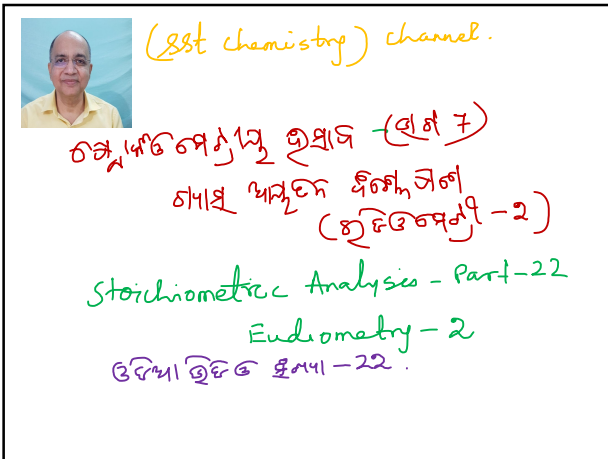 (SST chemistry) channel.
ଷ୍ଟୋକିଓମେଟ୍ରୀୟ ହିସାବ - (ଭାଗ 7)
ଗ୍ୟାସ୍ ଆୟତନ ବିଶ୍ଳେଷଣ
(ଇଡିଓମେଟ୍ରୀ - 2)
Stoichiometric Analysis - Part - 22
Eudiometry - 2
ଓଡିଆ ଭିଡିଓ - 22.